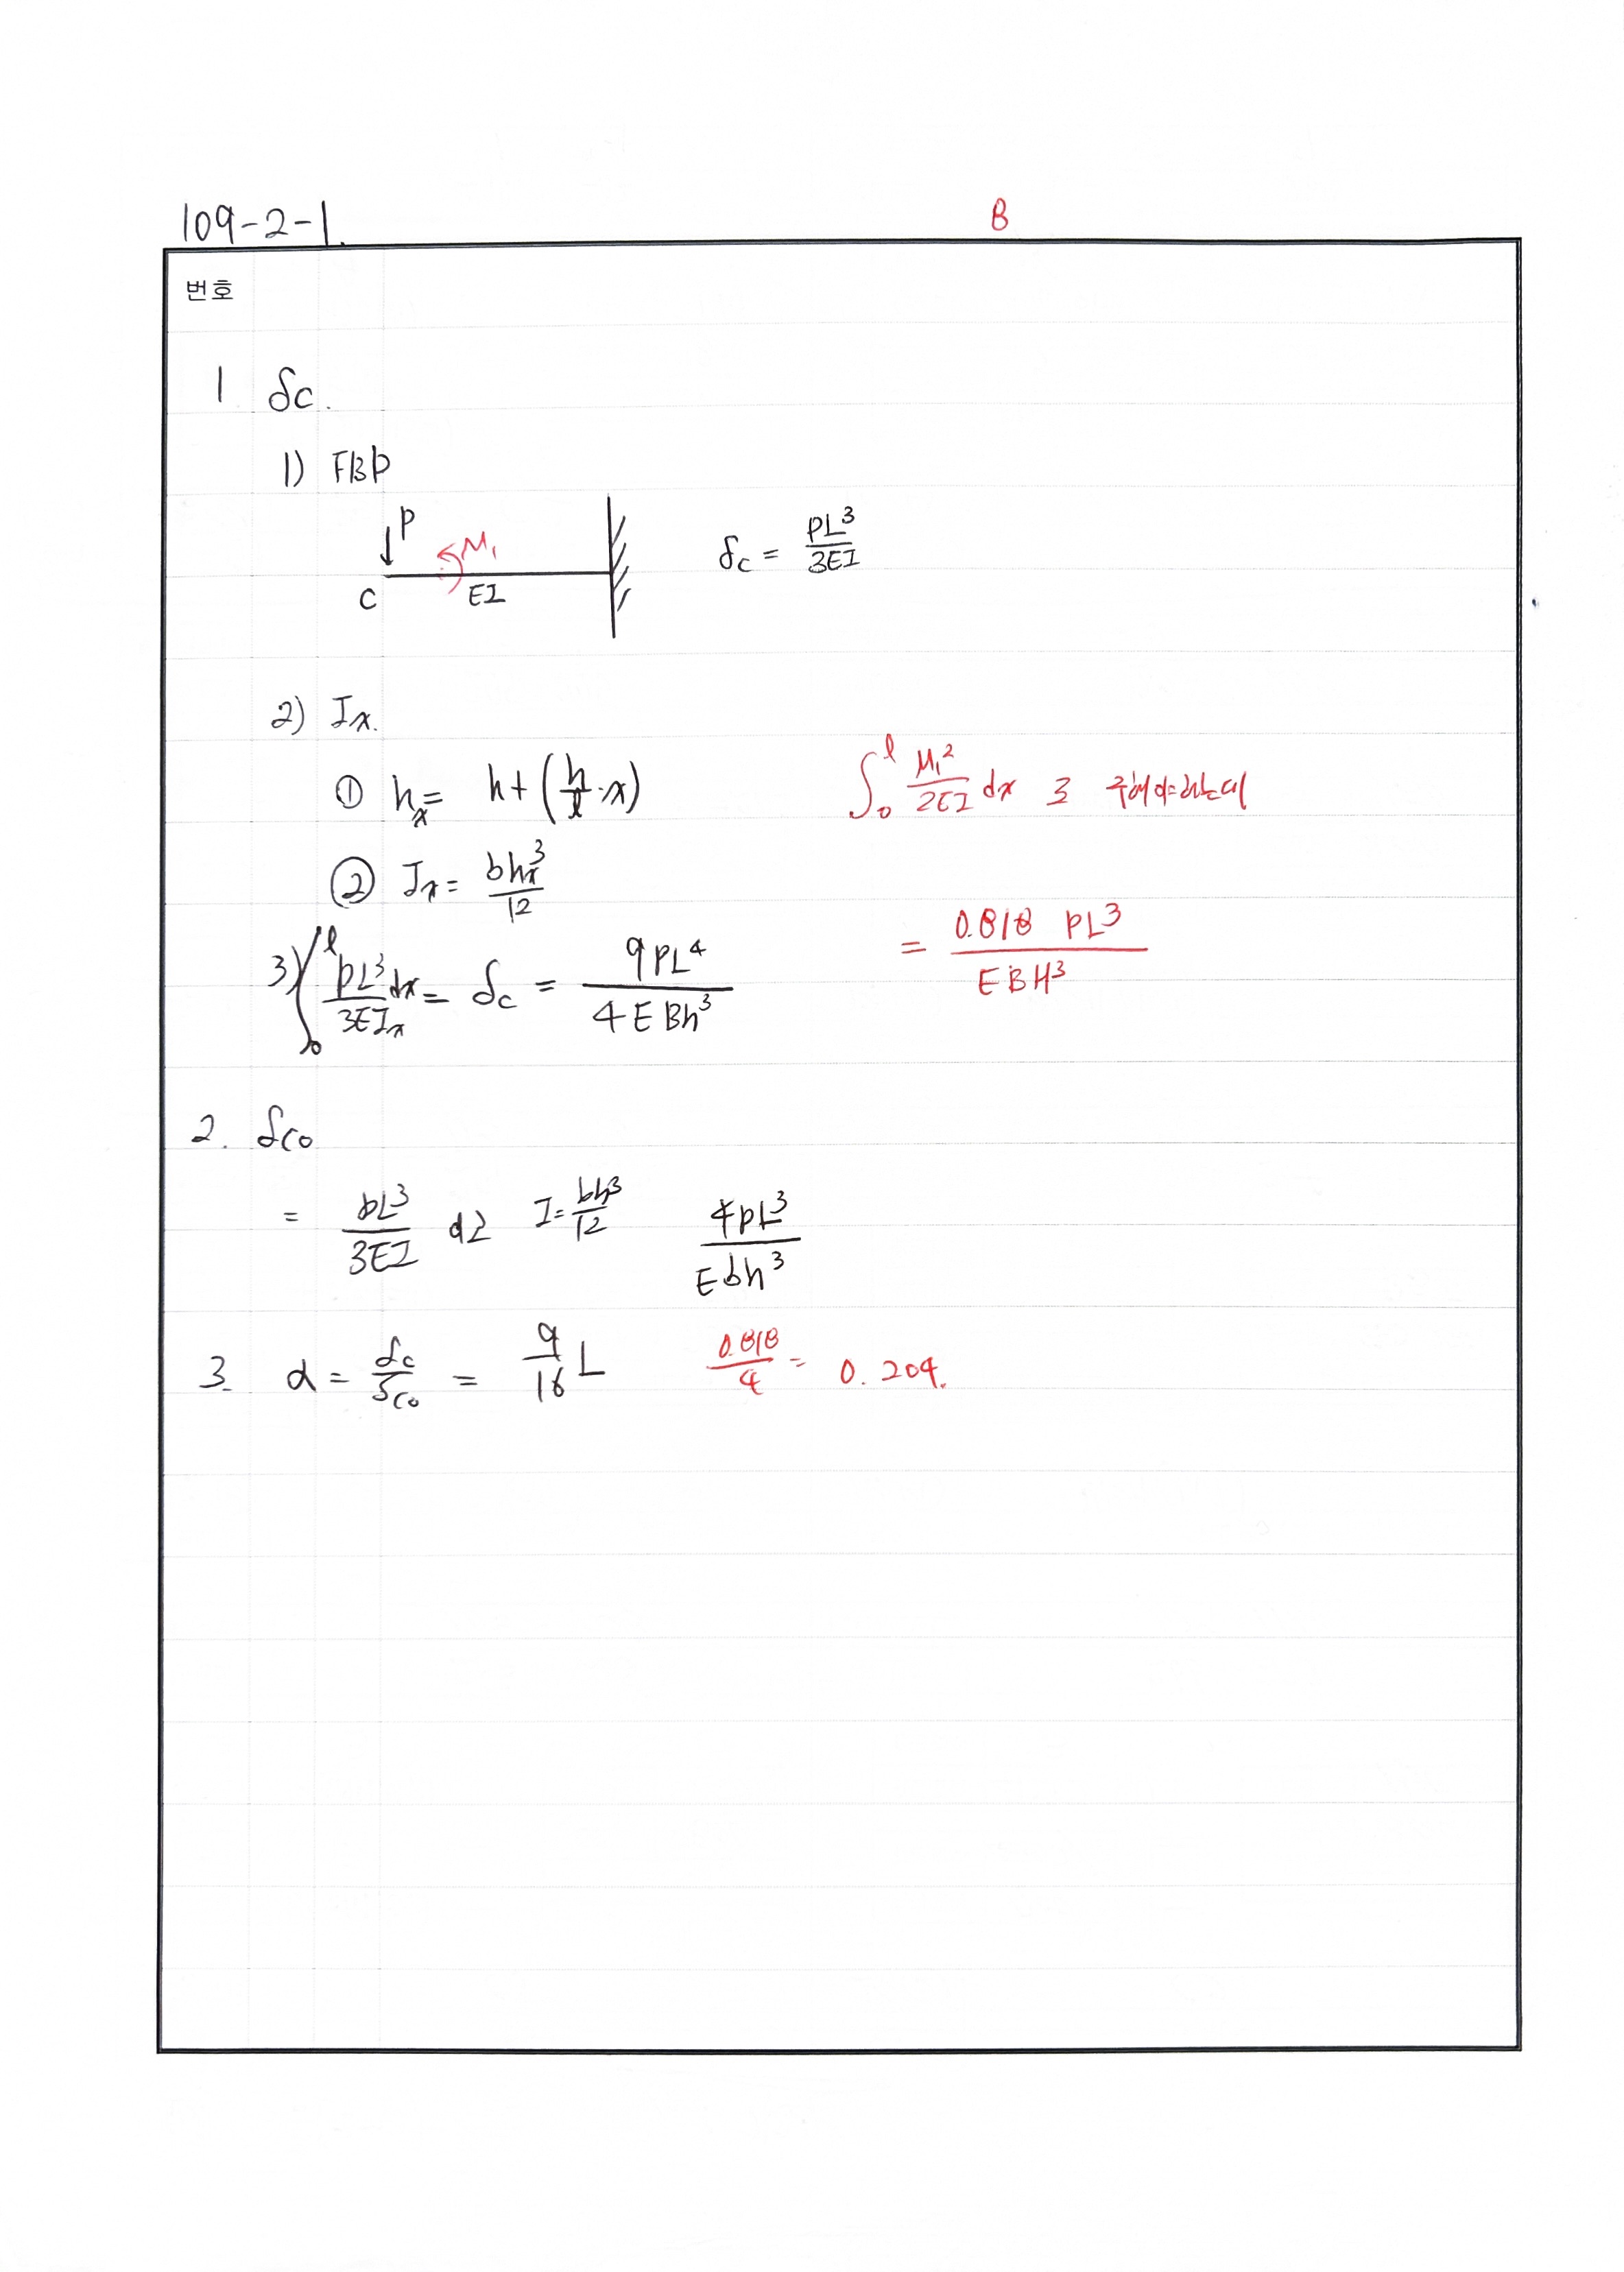 109-2-1.
B
번호
1 δc.
1) FBD
P
M₁
C
EI
δc = PL³/3EI
2) Ix.
① hx = h+(h/l·x)
∫₀ˡ M₁²/2EI dx 로 구해야하는데
② Ix = bhx³/12
3) ∫₀ˡ PL³/3EIx dx = δc = 9PL⁴/4EBh³
= 0.818 PL³/EBH³
2. δco
= PL³/3EI I=bh³/12 4PL³/Ebh³
3. α = δc/δco = 9/16 L 0.818/4 = 0.204.